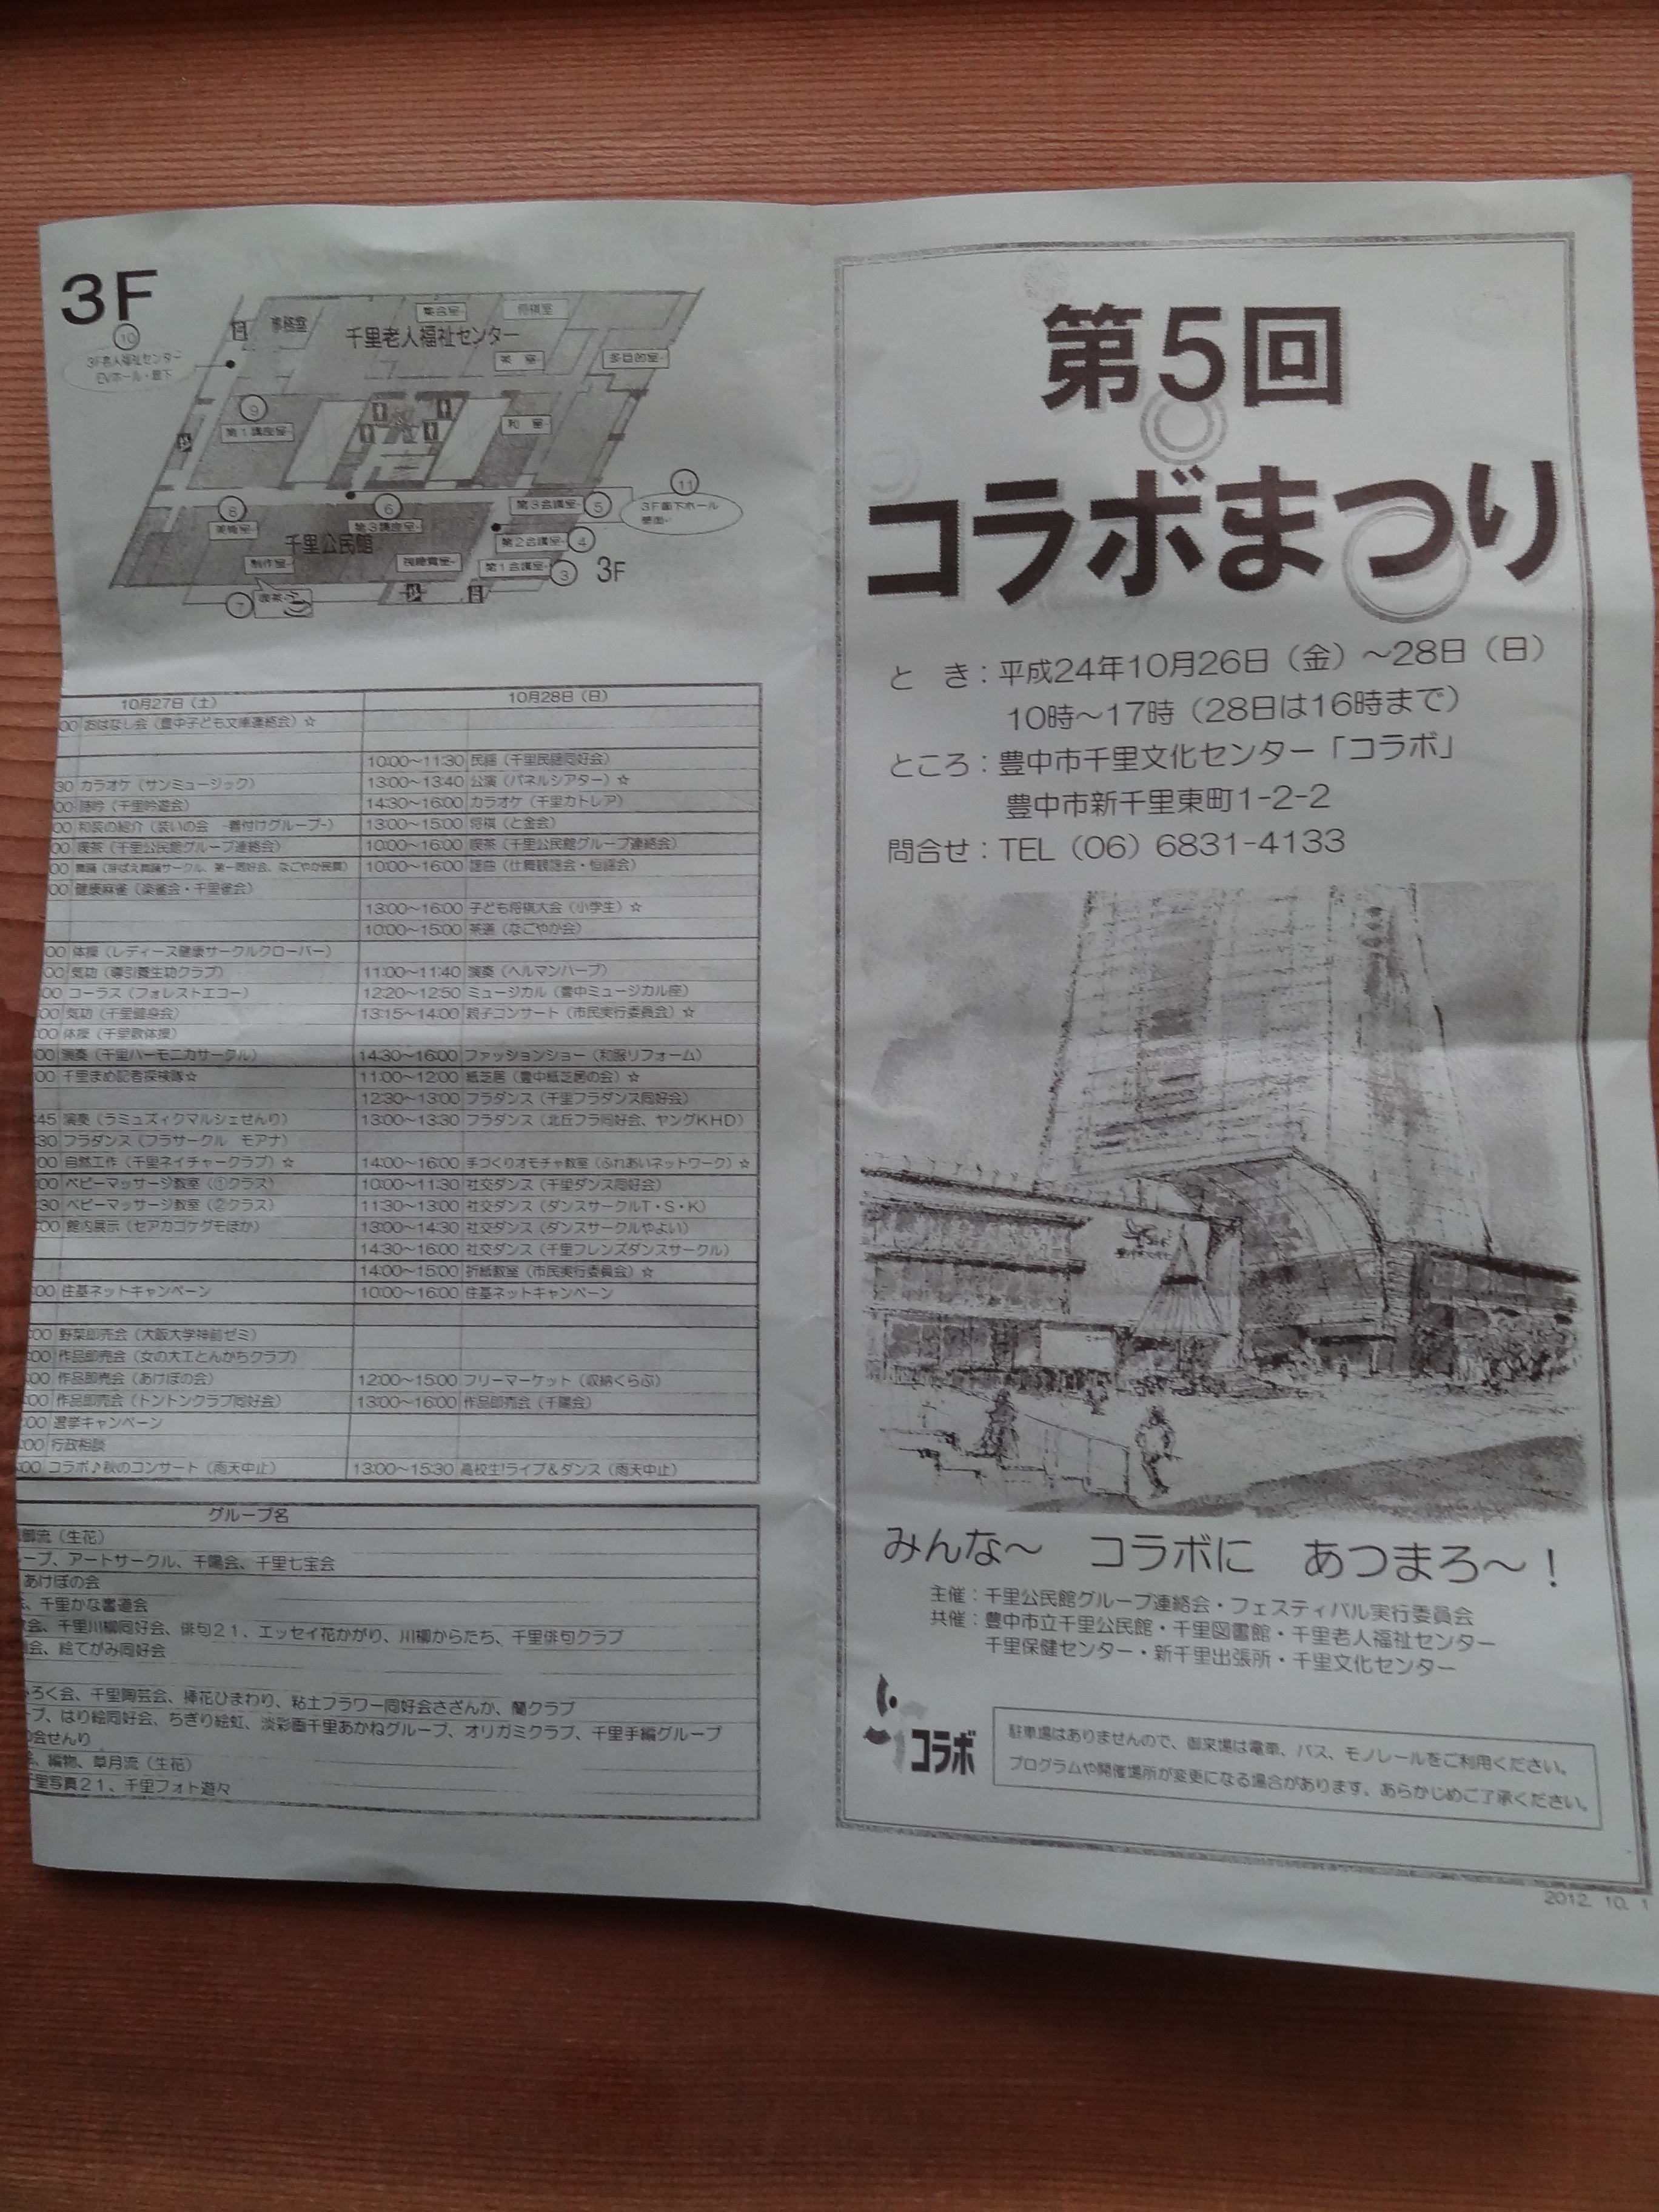 3F
⑩
3F老人福祉センター
EVホール・廊下
事務室
集会室
将棋室
千里老人福祉センター
茶 室
多目的室
⑨
第1講座室
和 室
⑧
美術室
⑥
第3講座室
第3会議室
⑤
⑪
3F廊下ホール
壁面
千里公民館
第2会議室
④
制作室
視聴覚室
第1会議室
③
3F
⑦
喫茶
10月27日(土) 10月28日(日)
00 おはなし会(豊中子ども文庫連絡会)☆
10:00～11:30 民謡(千里民謡同好会)
30 カラオケ(サンミュージック) 13:00～13:40 公演(パネルシアター)☆
00 詩吟(千里吟遊会) 14:30～16:00 カラオケ(千里カトレア)
00 和装の紹介(装いの会 -着付けグループ-) 13:00～15:00 将棋(と金会)
00 喫茶(千里公民館グループ連絡会) 10:00～16:00 喫茶(千里公民館グループ連絡会)
00 舞踊(芽ばえ舞踊サークル、第一同好会、なごやか民舞) 10:00～16:00 謡曲(仕舞観謡会・恒謡会)
00 健康麻雀(楽雀会・千里雀会)
13:00～16:00 子ども将棋大会(小学生)☆
10:00～15:00 茶道(なごやか会)
00 体操(レディース健康サークルクローバー)
00 気功(導引養生功クラブ) 11:00～11:40 演奏(ヘルマンハープ)
00 コーラス(フォレストエコー) 12:20～12:50 ミュージカル(豊中ミュージカル座)
00 気功(千里健身会) 13:15～14:00 親子コンサート(市民実行委員会)☆
:00 体操(千里歌体操)
00 演奏(千里ハーモニカサークル) 14:30～16:00 ファッションショー(和服リフォーム)
00 千里まめ記者探検隊☆ 11:00～12:00 紙芝居(豊中紙芝居の会)☆
12:30～13:00 フラダンス(千里フラダンス同好会)
:45 演奏(ラミュズィクマルシェせんり) 13:00～13:30 フラダンス(北丘フラ同好会、ヤングKHD)
:30 フラダンス(フラサークル モアナ)
:00 自然工作(千里ネイチャークラブ)☆ 14:00～16:00 手づくりオモチャ教室(ふれあいネットワーク)☆
:00 ベビーマッサージ教室(①クラス) 10:00～11:30 社交ダンス(千里ダンス同好会)
:30 ベビーマッサージ教室(②クラス) 11:30～13:00 社交ダンス(ダンスサークルT・S・K)
:00 館内展示(セアカゴケグモほか) 13:00～14:30 社交ダンス(ダンスサークルやよい)
14:30～16:00 社交ダンス(千里フレンズダンスサークル)
14:00～15:00 折紙教室(市民実行委員会)☆
:00 住基ネットキャンペーン 10:00～16:00 住基ネットキャンペーン
:00 野菜即売会(大阪大学神前ゼミ)
:00 作品即売会(女の大工とんかちクラブ)
:00 作品即売会(あけぼの会) 12:00～15:00 フリーマーケット(収納くらぶ)
:00 作品即売会(トントンクラブ同好会) 13:00～16:00 作品即売会(千陽会)
:00 選挙キャンペーン
:00 行政相談
:00 コラボ♪秋のコンサート(雨天中止) 13:00～15:30 高校生!ライブ&ダンス(雨天中止)
グループ名
御流(生花)
ープ、アートサークル、千陽会、千里七宝会
あけぼの会
、千里かな書道会
会、千里川柳同好会、俳句21、エッセイ花かがり、川柳からたち、千里俳句クラブ
会、絵てがみ同好会
ろく会、千里陶芸会、挿花ひまわり、粘土フラワー同好会さざんか、蘭クラブ
プ、はり絵同好会、ちぎり絵虹、淡彩画千里あかねグループ、オリガミクラブ、千里手編グループ
会せんり
、編物、草月流(生花)
千里写真21、千里フォト遊々
第5回
コラボまつり
と き：平成24年10月26日(金)～28日(日)
10時～17時(28日は16時まで)
ところ：豊中市千里文化センター「コラボ」
豊中市新千里東町1-2-2
問合せ：TEL(06)6831-4133
みんな～ コラボに あつまろ～！
主催：千里公民館グループ連絡会・フェスティバル実行委員会
共催：豊中市立千里公民館・千里図書館・千里老人福祉センター
千里保健センター・新千里出張所・千里文化センター
コラボ
駐車場はありませんので、御来場は電車、バス、モノレールをご利用ください。
プログラムや開催場所が変更になる場合があります、あらかじめご了承ください。
2012. 10. 1